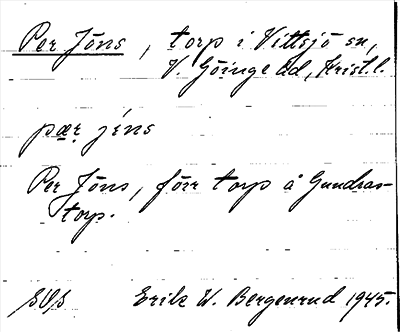 Per Jöns, torp i Vittsjö sn,
V. Göinge hd, Krist. l.
pær jéns
Per Jöns, förr torp å Gundras-
torp.
Erik W. Bergenrud 1945.